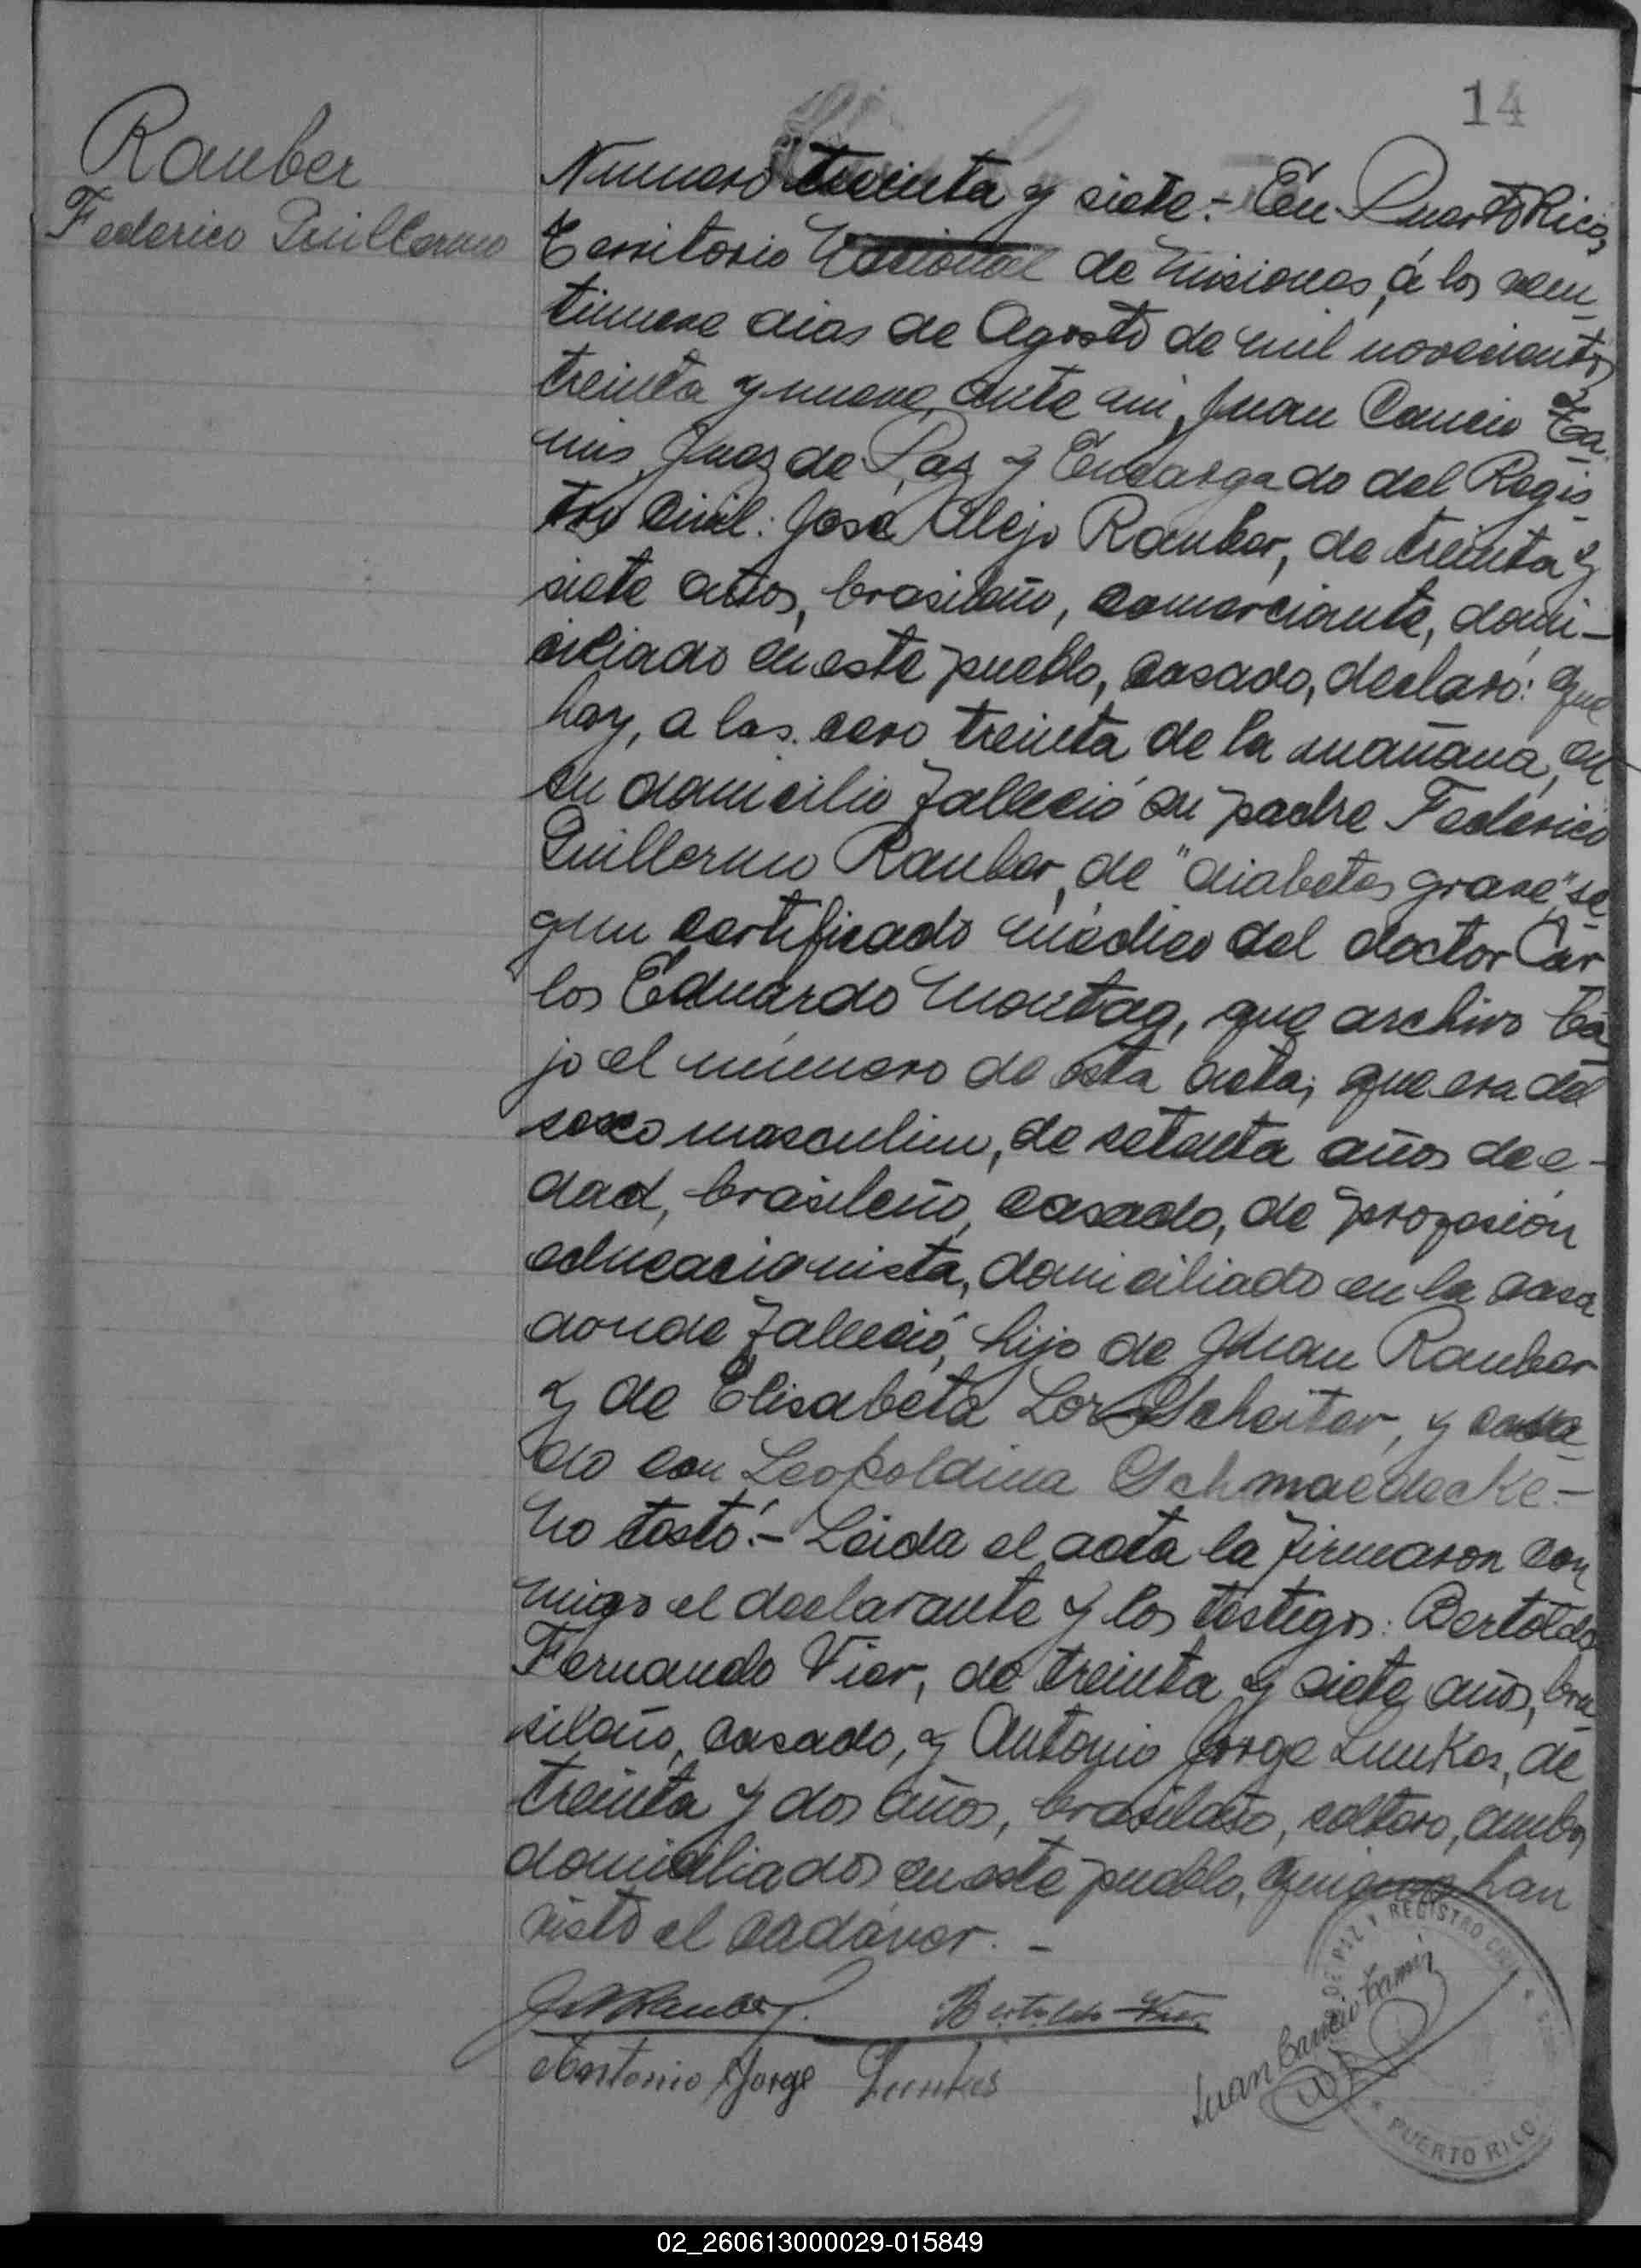 14
Rauber
Federico Guillermo
Numero treinta y siete:- En Puerto Rico,
Territorio Nacional de Misiones, á los vein_
tinueve dias de Agosto de mil novecientos
treinta y nueve, ante mi, Juan Cancio Ta_
mis, Juez de Paz y Encargado del Regis_
tro Civil: José Alejo Rauber, de treinta y
siete años, brasileño, comerciante, domi-
ciliado en este pueblo, casado, declaró: que
hoy, a las cero treinta de la mañana, en
su domicilio falleció su padre Federico
Guillermo Rauber, de "diabetes grave", se_
gun certificado médico del doctor Car_
los Eduardo Montag, que archivo ba_
jo el número de esta acta; que era del
sexo masculino, de setenta años de e-
dad, brasileño, casado, de profesión
educacionista, domiciliado en la casa
donde falleció, hijo de Juan Rauber
y de Elisabeta Scheiter, y casa_
do con Leopoldina Schmaedecke.-
No testó.- Leida el acta la firmaron con
migo el declarante y los testigos: Bertoldo
Fernando Vier, de treinta y siete años, bra_
sileño, casado, y Antonio Jorge Lunkes, de
treinta y dos años, brasileño, soltero, ambos
domiciliados en este pueblo, quienes han
visto el cadáver. -
Rauber. Bertoldo Vier
Antonio Jorge Lunkes
Juan Cancio Tamis
DE PAZ Y REGISTRO CIVIL
* PUERTO RICO
02_260613000029-015849